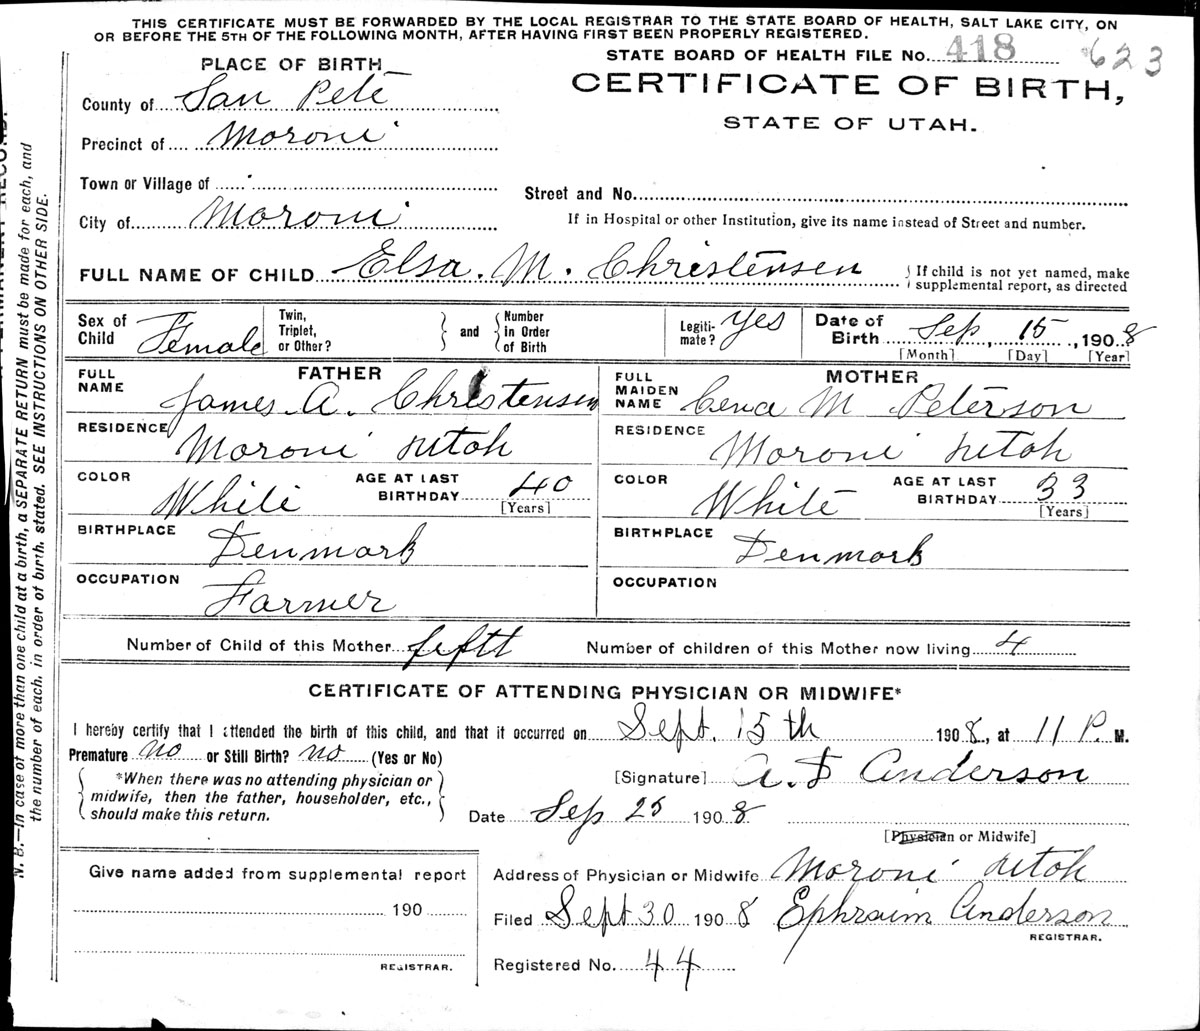 THIS CERTIFICATE MUST BE FORWARDED BY THE LOCAL REGISTRAR TO THE STATE BOARD OF HEALTH, SALT LAKE CITY, ON
OR BEFORE THE 5TH OF THE FOLLOWING MONTH, AFTER HAVING FIRST BEEN PROPERLY REGISTERED.
STATE BOARD OF HEALTH FILE No. 418 623
CERTIFICATE OF BIRTH,
STATE OF UTAH.
PLACE OF BIRTH
County of San Pete
Precinct of Moroni
Town or Village of
City of Moroni
Street and No.
If in Hospital or other Institution, give its name instead of Street and number.
FULL NAME OF CHILD Elsa. M. Christensen
If child is not yet named, make
supplemental report, as directed
Sex of Child Female
Twin, Triplet, or Other?
and
Number in Order of Birth
Legiti-mate? yes
Date of Birth Sep, 15, 1908
[Month] [Day] [Year]
FATHER
FULL NAME James A. Christensen
RESIDENCE Moroni utah
COLOR White
AGE AT LAST BIRTHDAY 40
[Years]
BIRTHPLACE Denmark
OCCUPATION Farmer
MOTHER
FULL MAIDEN NAME Cena M Peterson
RESIDENCE Moroni utah
COLOR White
AGE AT LAST BIRTHDAY 33
[Years]
BIRTHPLACE Denmark
OCCUPATION
Number of Child of this Mother fiftt
Number of children of this Mother now living 4
CERTIFICATE OF ATTENDING PHYSICIAN OR MIDWIFE*
I hereby certify that I attended the birth of this child, and that it occurred on Sept. 15th 1908, at 11 P. M.
Premature no or Still Birth? no (Yes or No)
*When there was no attending physician or
midwife, then the father, householder, etc.,
should make this return.
[Signature] A. D Anderson
Date Sep 25 1908
[Physician or Midwife]
Give name added from supplemental report
190
REGISTRAR.
Address of Physician or Midwife Moroni utah
Filed Sept 30 1908 Ephraim Anderson
REGISTRAR.
Registered No. 44
N. B.—In case of more than one child at a birth, a SEPARATE RETURN must be made for each, and
the number of each, in order of birth, stated. SEE INSTRUCTIONS ON OTHER SIDE.